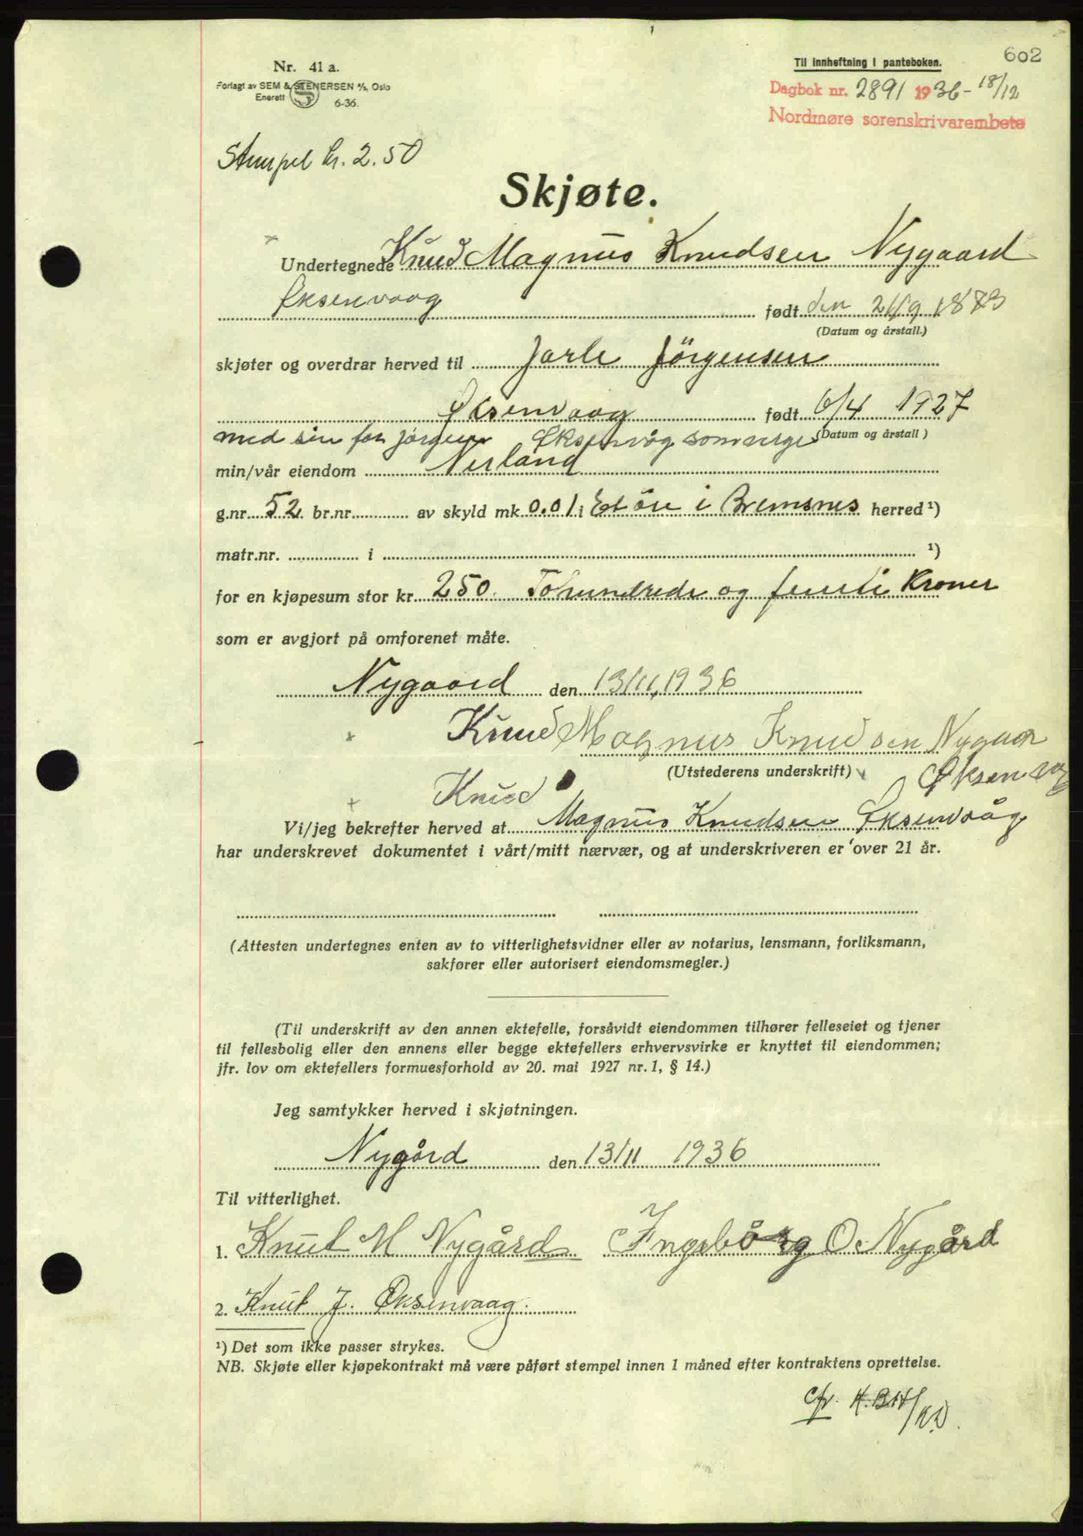 602
Nr. 41 a.
Forlagt av SEM & STENERSEN A/S, Oslo
Enerett 6-36.
Til innheftning i panteboken.
Dagbok nr. 2891 1936 - 18/12
Nordmøre sorenskrivarembete
Stempel kr. 2.50
Skjøte.
Undertegnede Knud Magnus Knudsen Nygaard
Øksenvaag født den 21/9 1873
(Datum og årstall.)
skjøter og overdrar herved til Jarle Jörgensen
Øksenvaag født 6/4 1927
med sin far Jörgen Øksenvåg som verge (Datum og årstall)
min/vår eiendom Nerland
g.nr. 52 br.nr. av skyld mk. 0.01 i Et öre i Bremsnes herred ¹)
matr.nr. i ¹)
for en kjøpesum stor kr. 250. Tohundrede og femti Kroner
som er avgjort på omforenet måte.
Nygaard den 13/11 1936
Knud Magnus Knudsen Nygaar
(Utstederens underskrift) Øksenvåg
Knud
Vi/jeg bekrefter herved at Magnus Knudsen Øksenvåg
har underskrevet dokumentet i vårt/mitt nærvær, og at underskriveren er over 21 år.
(Attesten undertegnes enten av to vitterlighetsvidner eller av notarius, lensmann, forliksmann,
sakfører eller autorisert eiendomsmegler.)
(Til underskrift av den annen ektefelle, forsåvidt eiendommen tilhører felleseiet og tjener
til fellesbolig eller den annens eller begge ektefellers erhvervsvirke er knyttet til eiendommen;
jfr. lov om ektefellers formuesforhold av 20. mai 1927 nr. 1, § 14.)
Jeg samtykker herved i skjøtningen.
Nygård den 13/11 1936
Til vitterlighet.
1. Knut M Nygård Ingebårg O Nygård
2. Knut J. Øksenvaag.
¹) Det som ikke passer strykes.
NB. Skjøte eller kjøpekontrakt må være påført stempel innen 1 måned efter kontraktens oprettelse.
cfr.